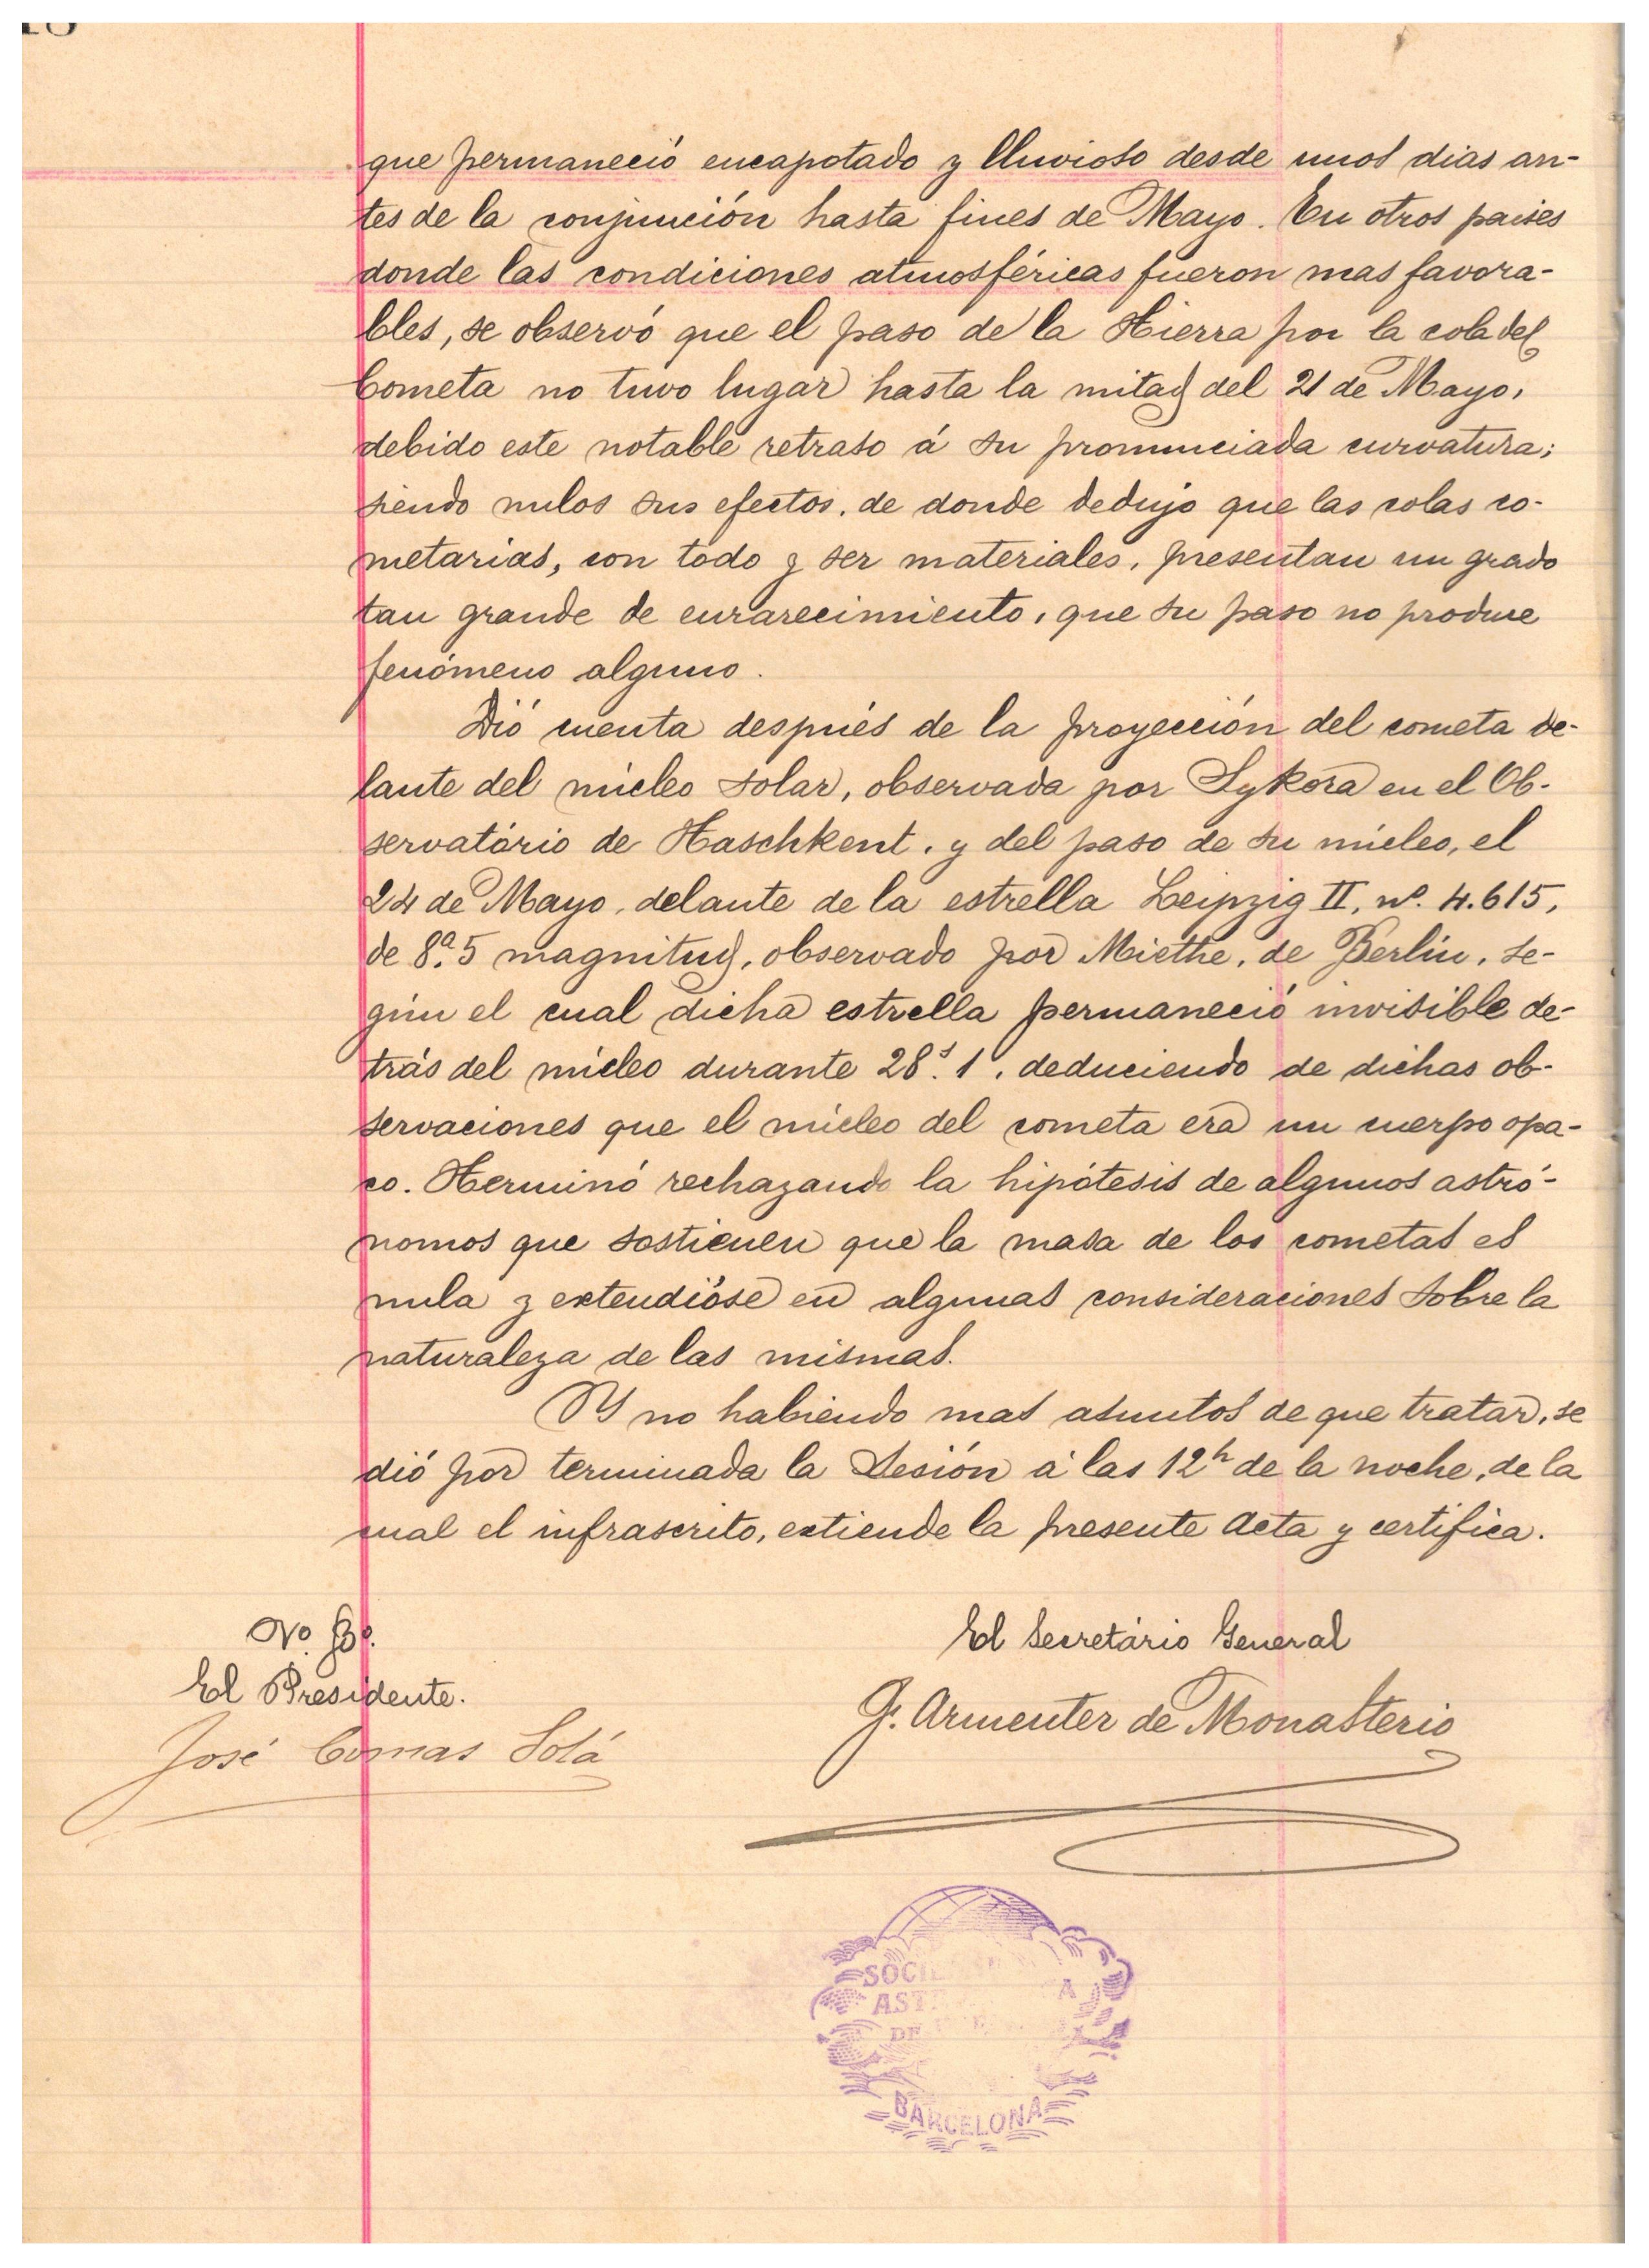 que permaneció encapotado y lluvioso desde unos dias an-
tes de la conjunción hasta fines de Mayo. En otros paises
donde las condiciones atmosféricas fueron mas favora-
bles, se observó que el paso de la Tierra por la cola del
Cometa no tuvo lugar hasta la mitad del 21 de Mayo,
debido este notable retraso á su pronunciada curvatura;
siendo nulos sus efectos, de donde dedujo que las colas co-
metarias, con todo y ser materiales, presentan un grado
tan grande de enrarecimiento, que su paso no produce
fenómeno alguno.
Dió cuenta después de la proyección del cometa de-
lante del núcleo solar, observada por Sykora en el Ob-
servatório de Taschkent, y del paso de su núcleo, el
24 de Mayo, delante de la estrella Leipzig II, nº. 4.615,
de 8ª.5 magnitud, observado por Miethe, de Berlin, se-
gún el cual dicha estrella permaneció invisible de-
trás del núcleo durante 28ˢ.1, deduciendo de dichas ob-
servaciones que el núcleo del cometa era un cuerpo opa-
co. Terminó rechazando la hipótesis de algunos astró-
nomos que sostienen que la masa de los cometas es
nula y extendióse en algunas consideraciones sobre la
naturaleza de las mismas.
Y no habiendo mas asuntos de que tratar, se
dió por terminada la Sesión á las 12ʰ de la noche, de la
cual el infrascrito, extiende la presente Acta y certifica.
Vº. Bº.
El Presidente.
José Comas Solá
El Secretário General
G. Armenter de Monasterio
SOCI
AST
A
DE
BARCELONA